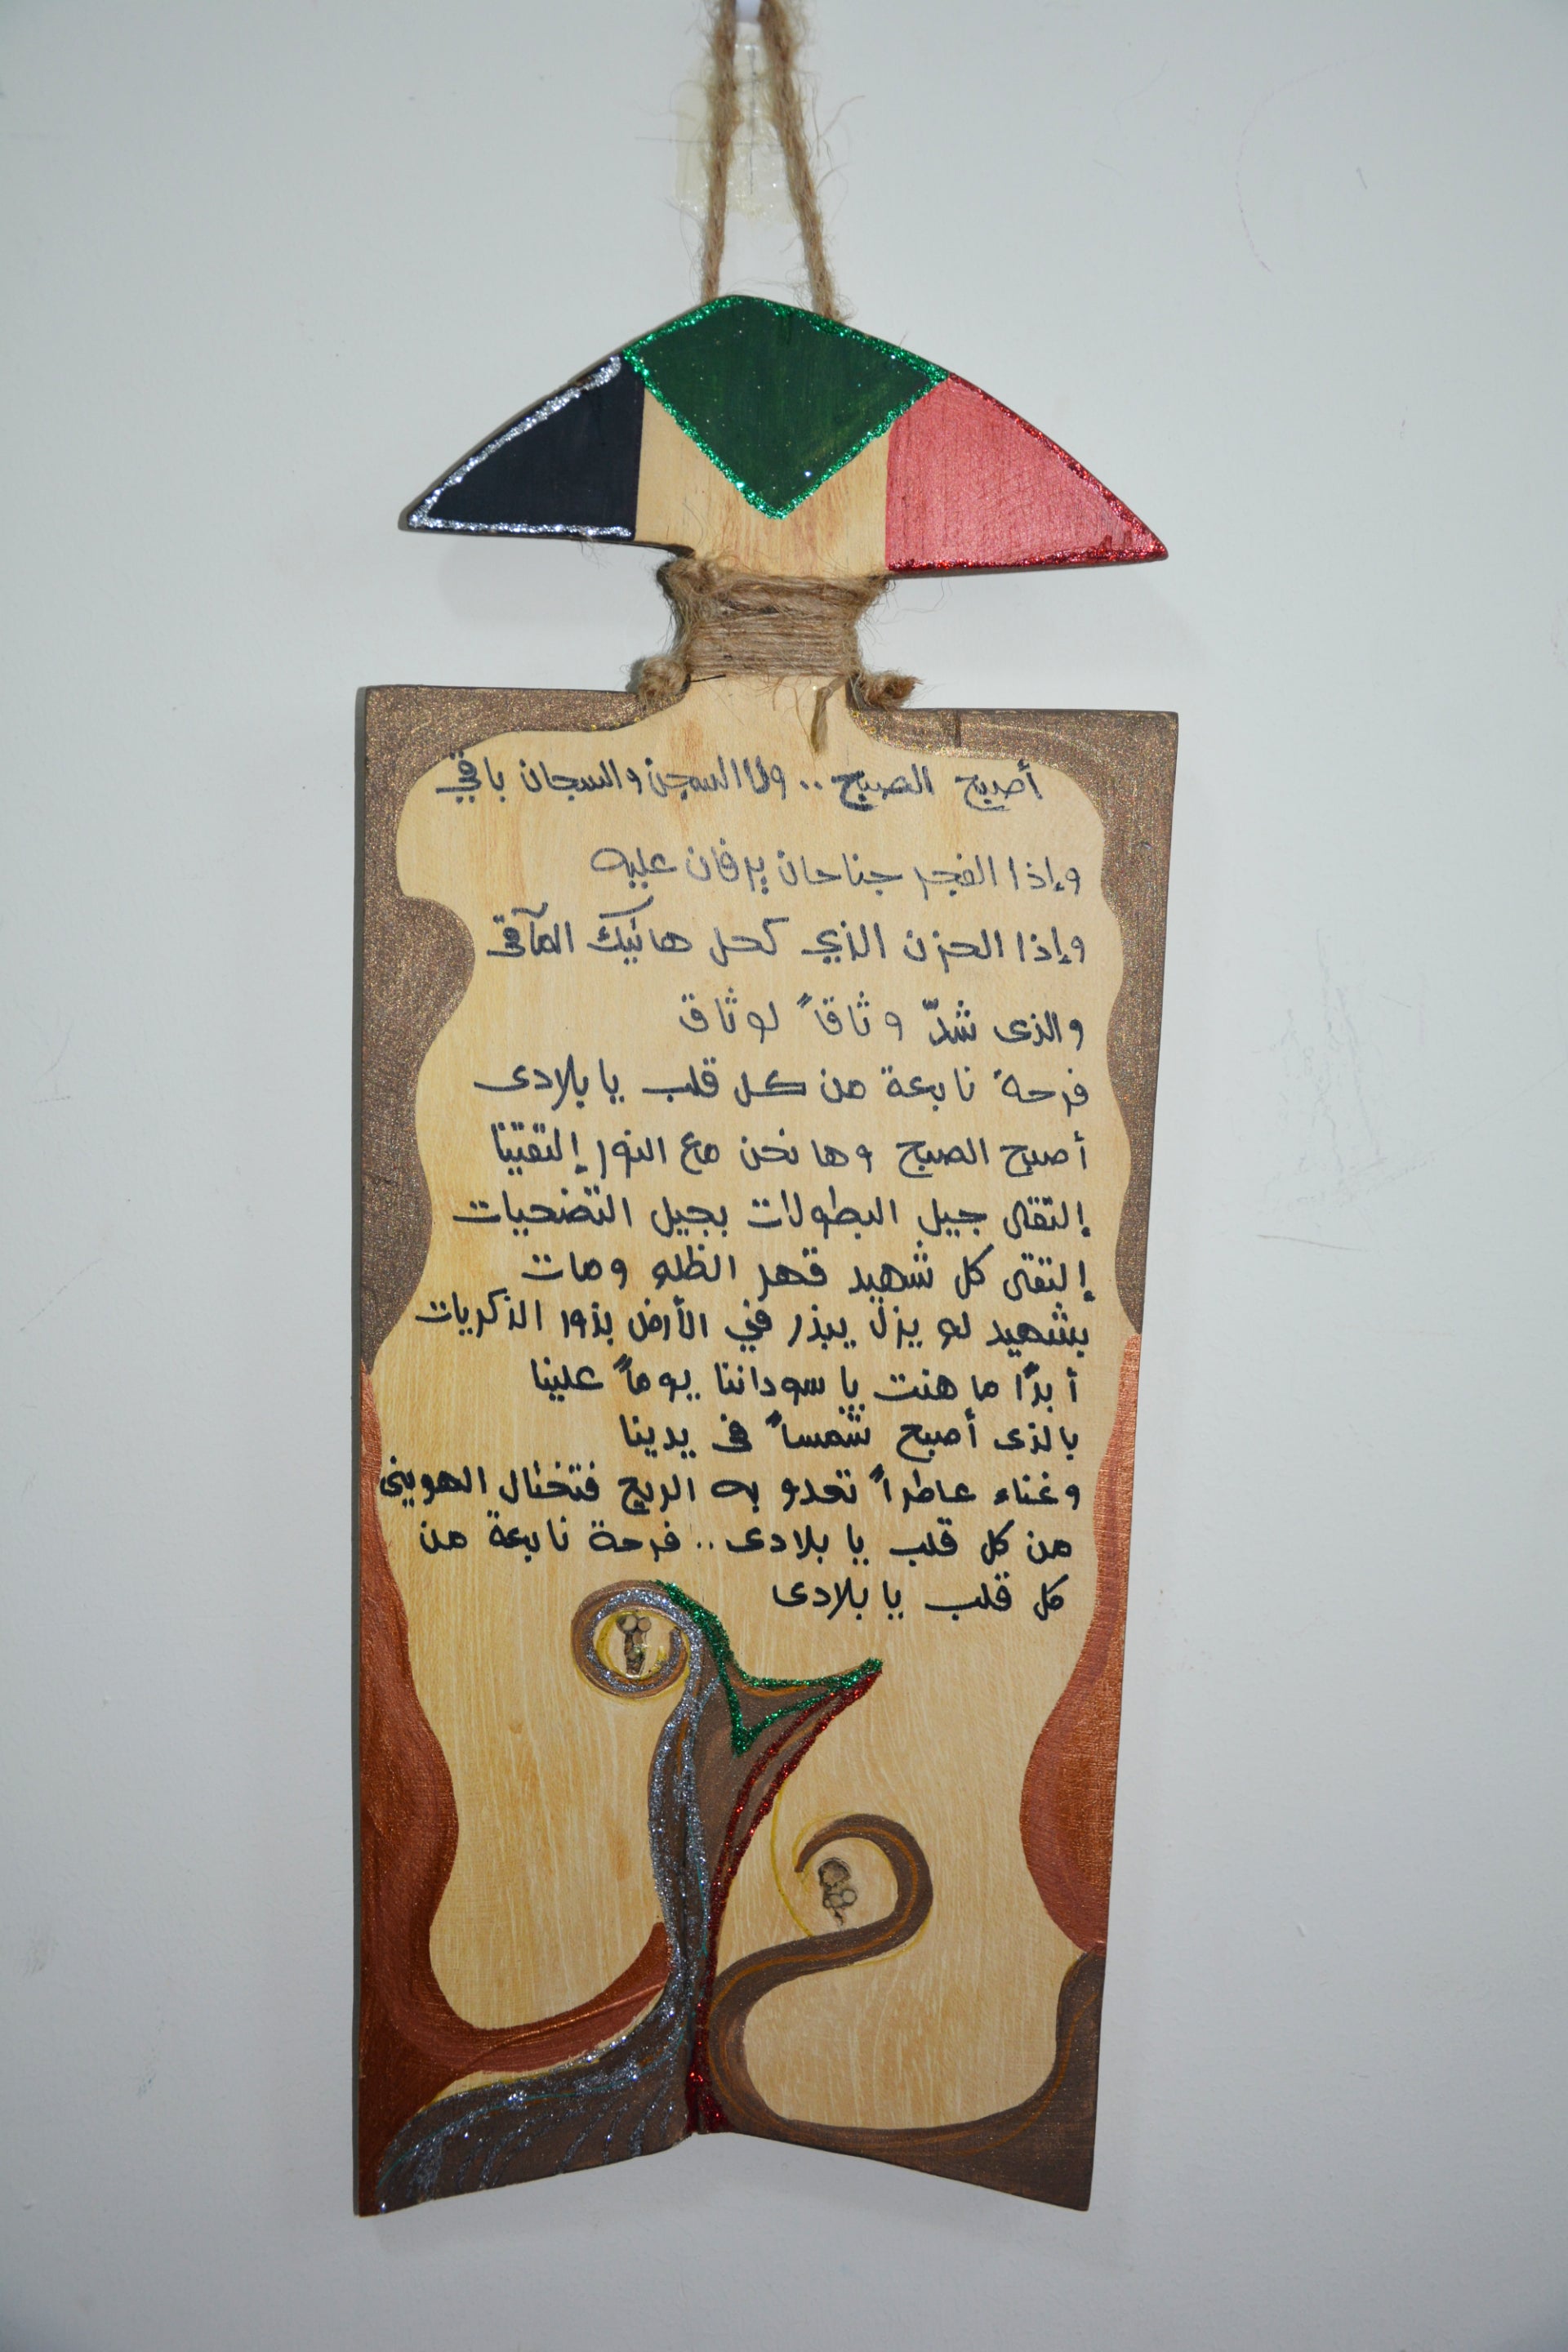 أصبح الصبح .. ولا السجن والسجان باقي
وإذا الفجر جناحان يرفان عليه
وإذا الحزن الذي كحل هاتيك المآقي
والذى شدّ وثاقاً لوثاق
فرحة نابعة من كل قلب يا بلادى
أصبح الصبح وها نحن مع النور إلتقينا
إلتقى جيل البطولات بجيل التضحيات
إلتقى كل شهيد قهر الظلم ومات
بشهيد لم يزل يبذر في الأرض بذور الذكريات
أبداً ما هنت يا سوداننا يوماً علينا
بالذى أصبح شمساً فى يدينا
وغناء عاطراً تعدو به الريح فتختال الهوينى
من كل قلب يا بلادى .. فرحة نابعة من
كل قلب يا بلادى